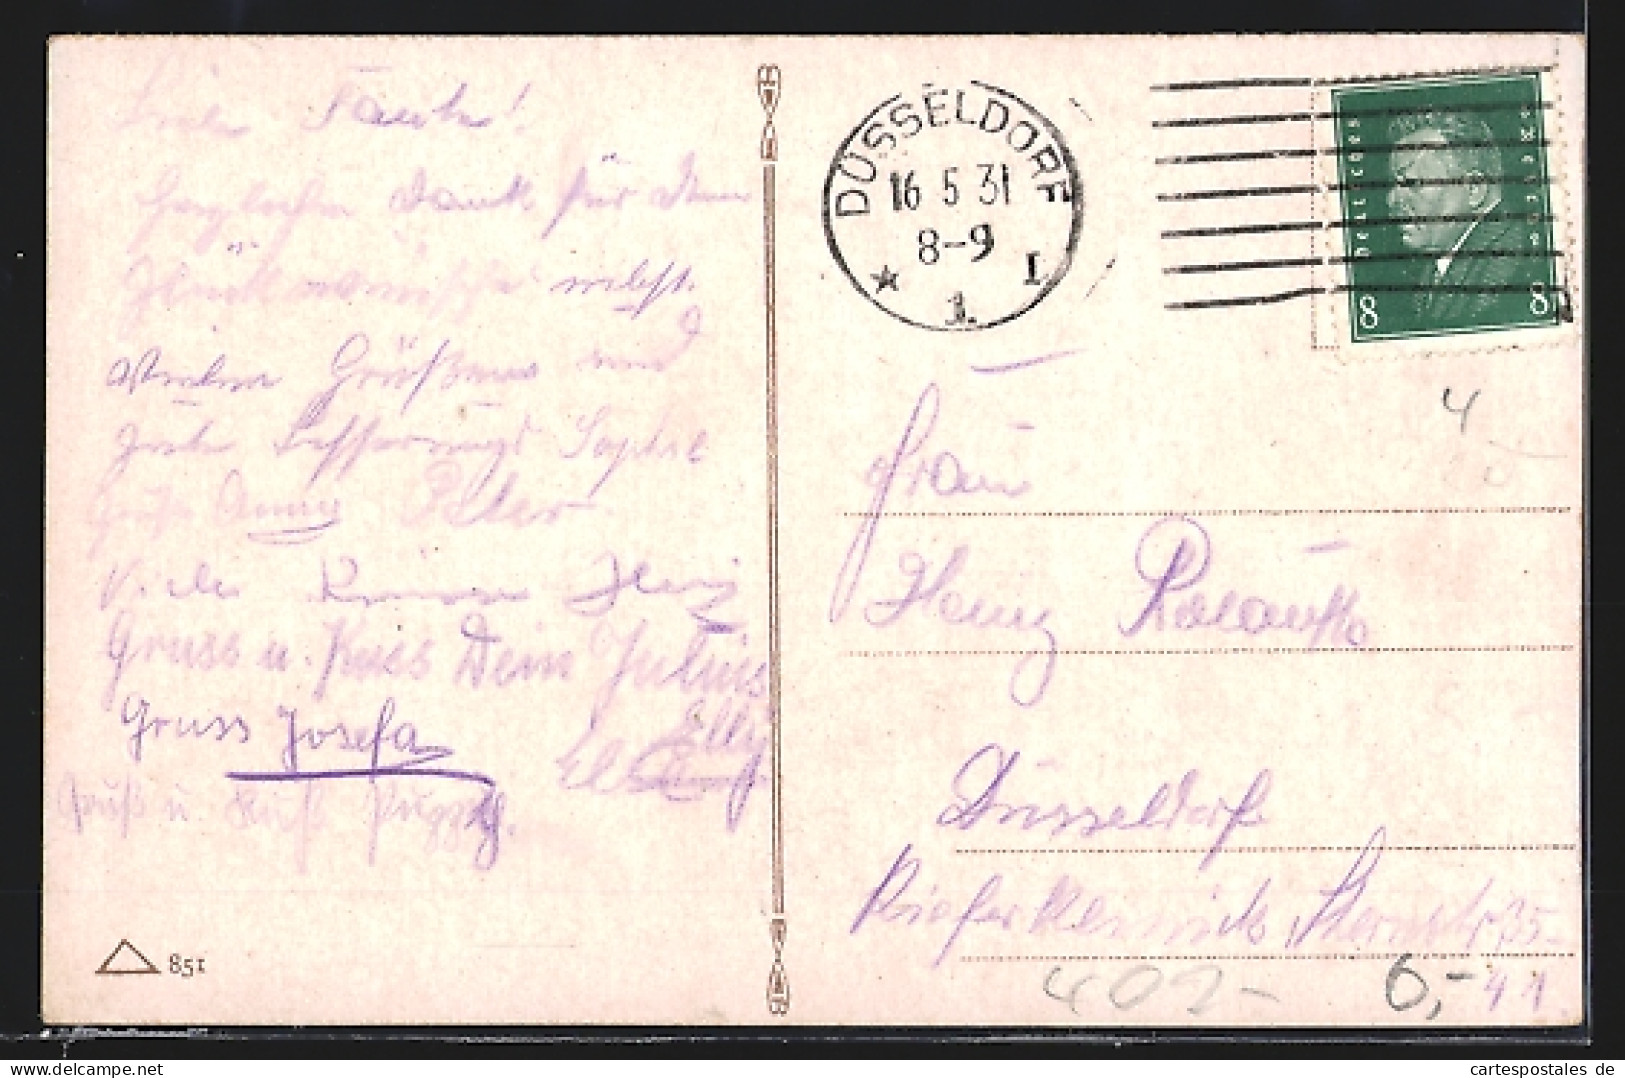 Liebe Tante!
Herzlichen Dank für Deine
Glückwünsche nebst
Vielen Grüßen und
gute Besserung Sophie
Gruß Anny Peter
Viele Heinz
Gruss u. Kuss Dein Julius
Gruss Josefa Elly
Gruß u. Kuß
851
DÜSSELDORF
16 5 31
8-9
★ 1. I
Deutsches Reich
8 8
4
Frau
Düsseldorf
Kieferklinik, Sternstr 35
402- 6,- 41
www.cartespostales.de